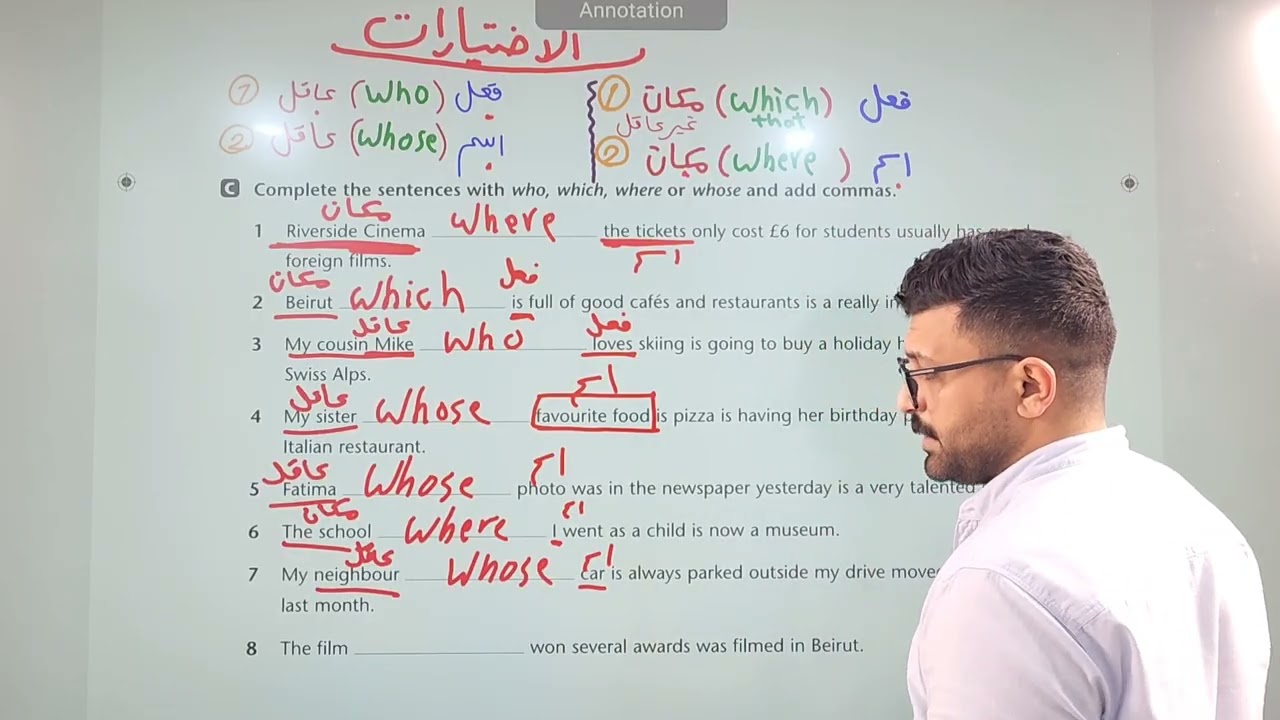 Annotation
الاختيارات
① عاقل (who) فعل
② عاقل (whose) اسم
① مكان (which) فعل
غير عاقل that
② مكان (where) اسم
C Complete the sentences with who, which, where or whose and add commas.
مكان
1 Riverside Cinema where the tickets only cost £6 for students usually has
اسم
foreign films.
مكان فعل
2 Beirut which is full of good cafés and restaurants is a really
عاقل فعل
3 My cousin Mike who loves skiing is going to buy a holiday
Swiss Alps.
عاقل اسم
4 My sister whose favourite food is pizza is having her birthday
Italian restaurant.
عاقل اسم
5 Fatima whose photo was in the newspaper yesterday is a very talented
مكان اسم
6 The school where I went as a child is now a museum.
عاقل اسم
7 My neighbour whose car is always parked outside my drive
last month.
8 The film won several awards was filmed in Beirut.